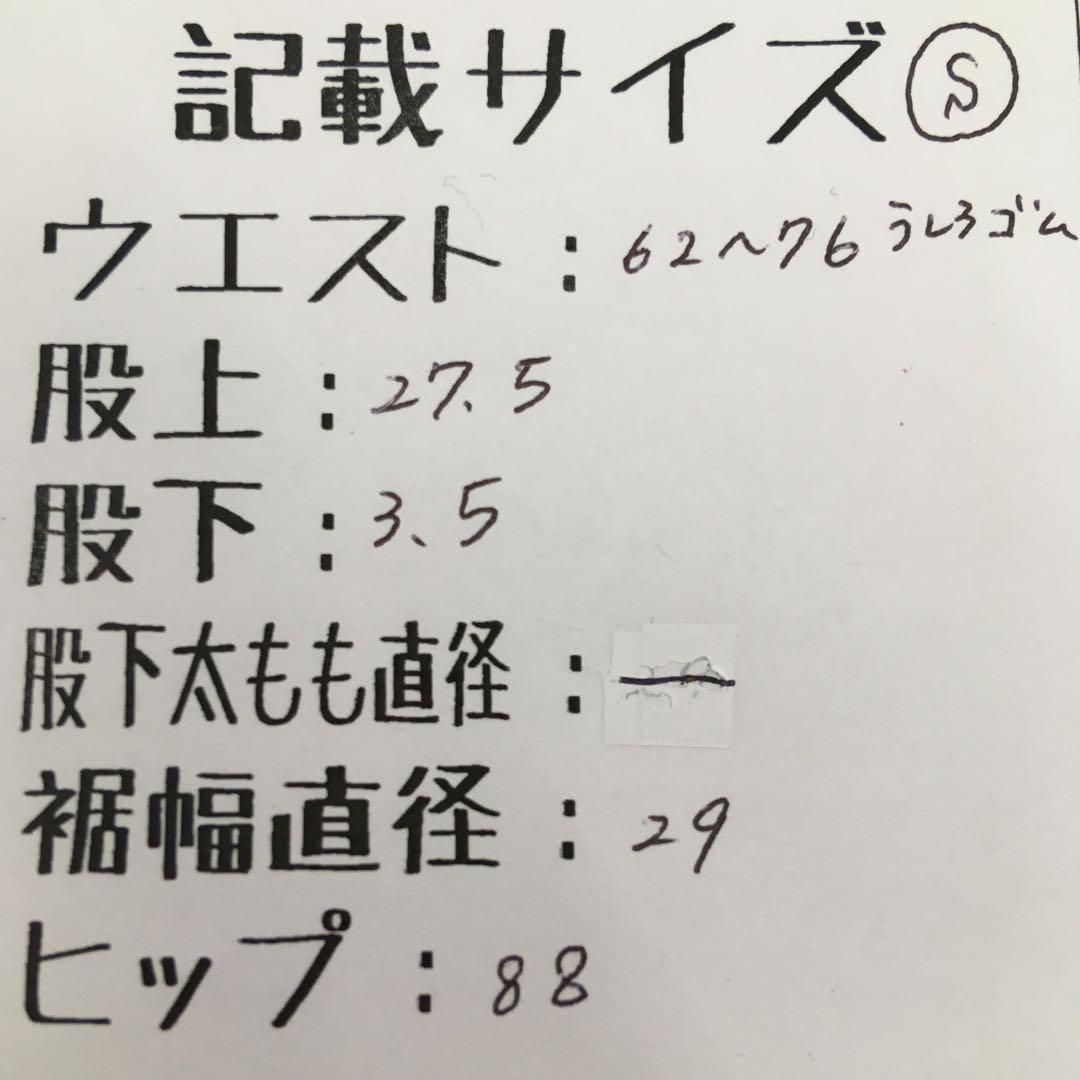 記載サイズⓈ
ウエスト：62〜76 うしろゴム
股上：27.5
股下：3.5
股下太もも直径：―
裾幅直径：29
ヒップ：88